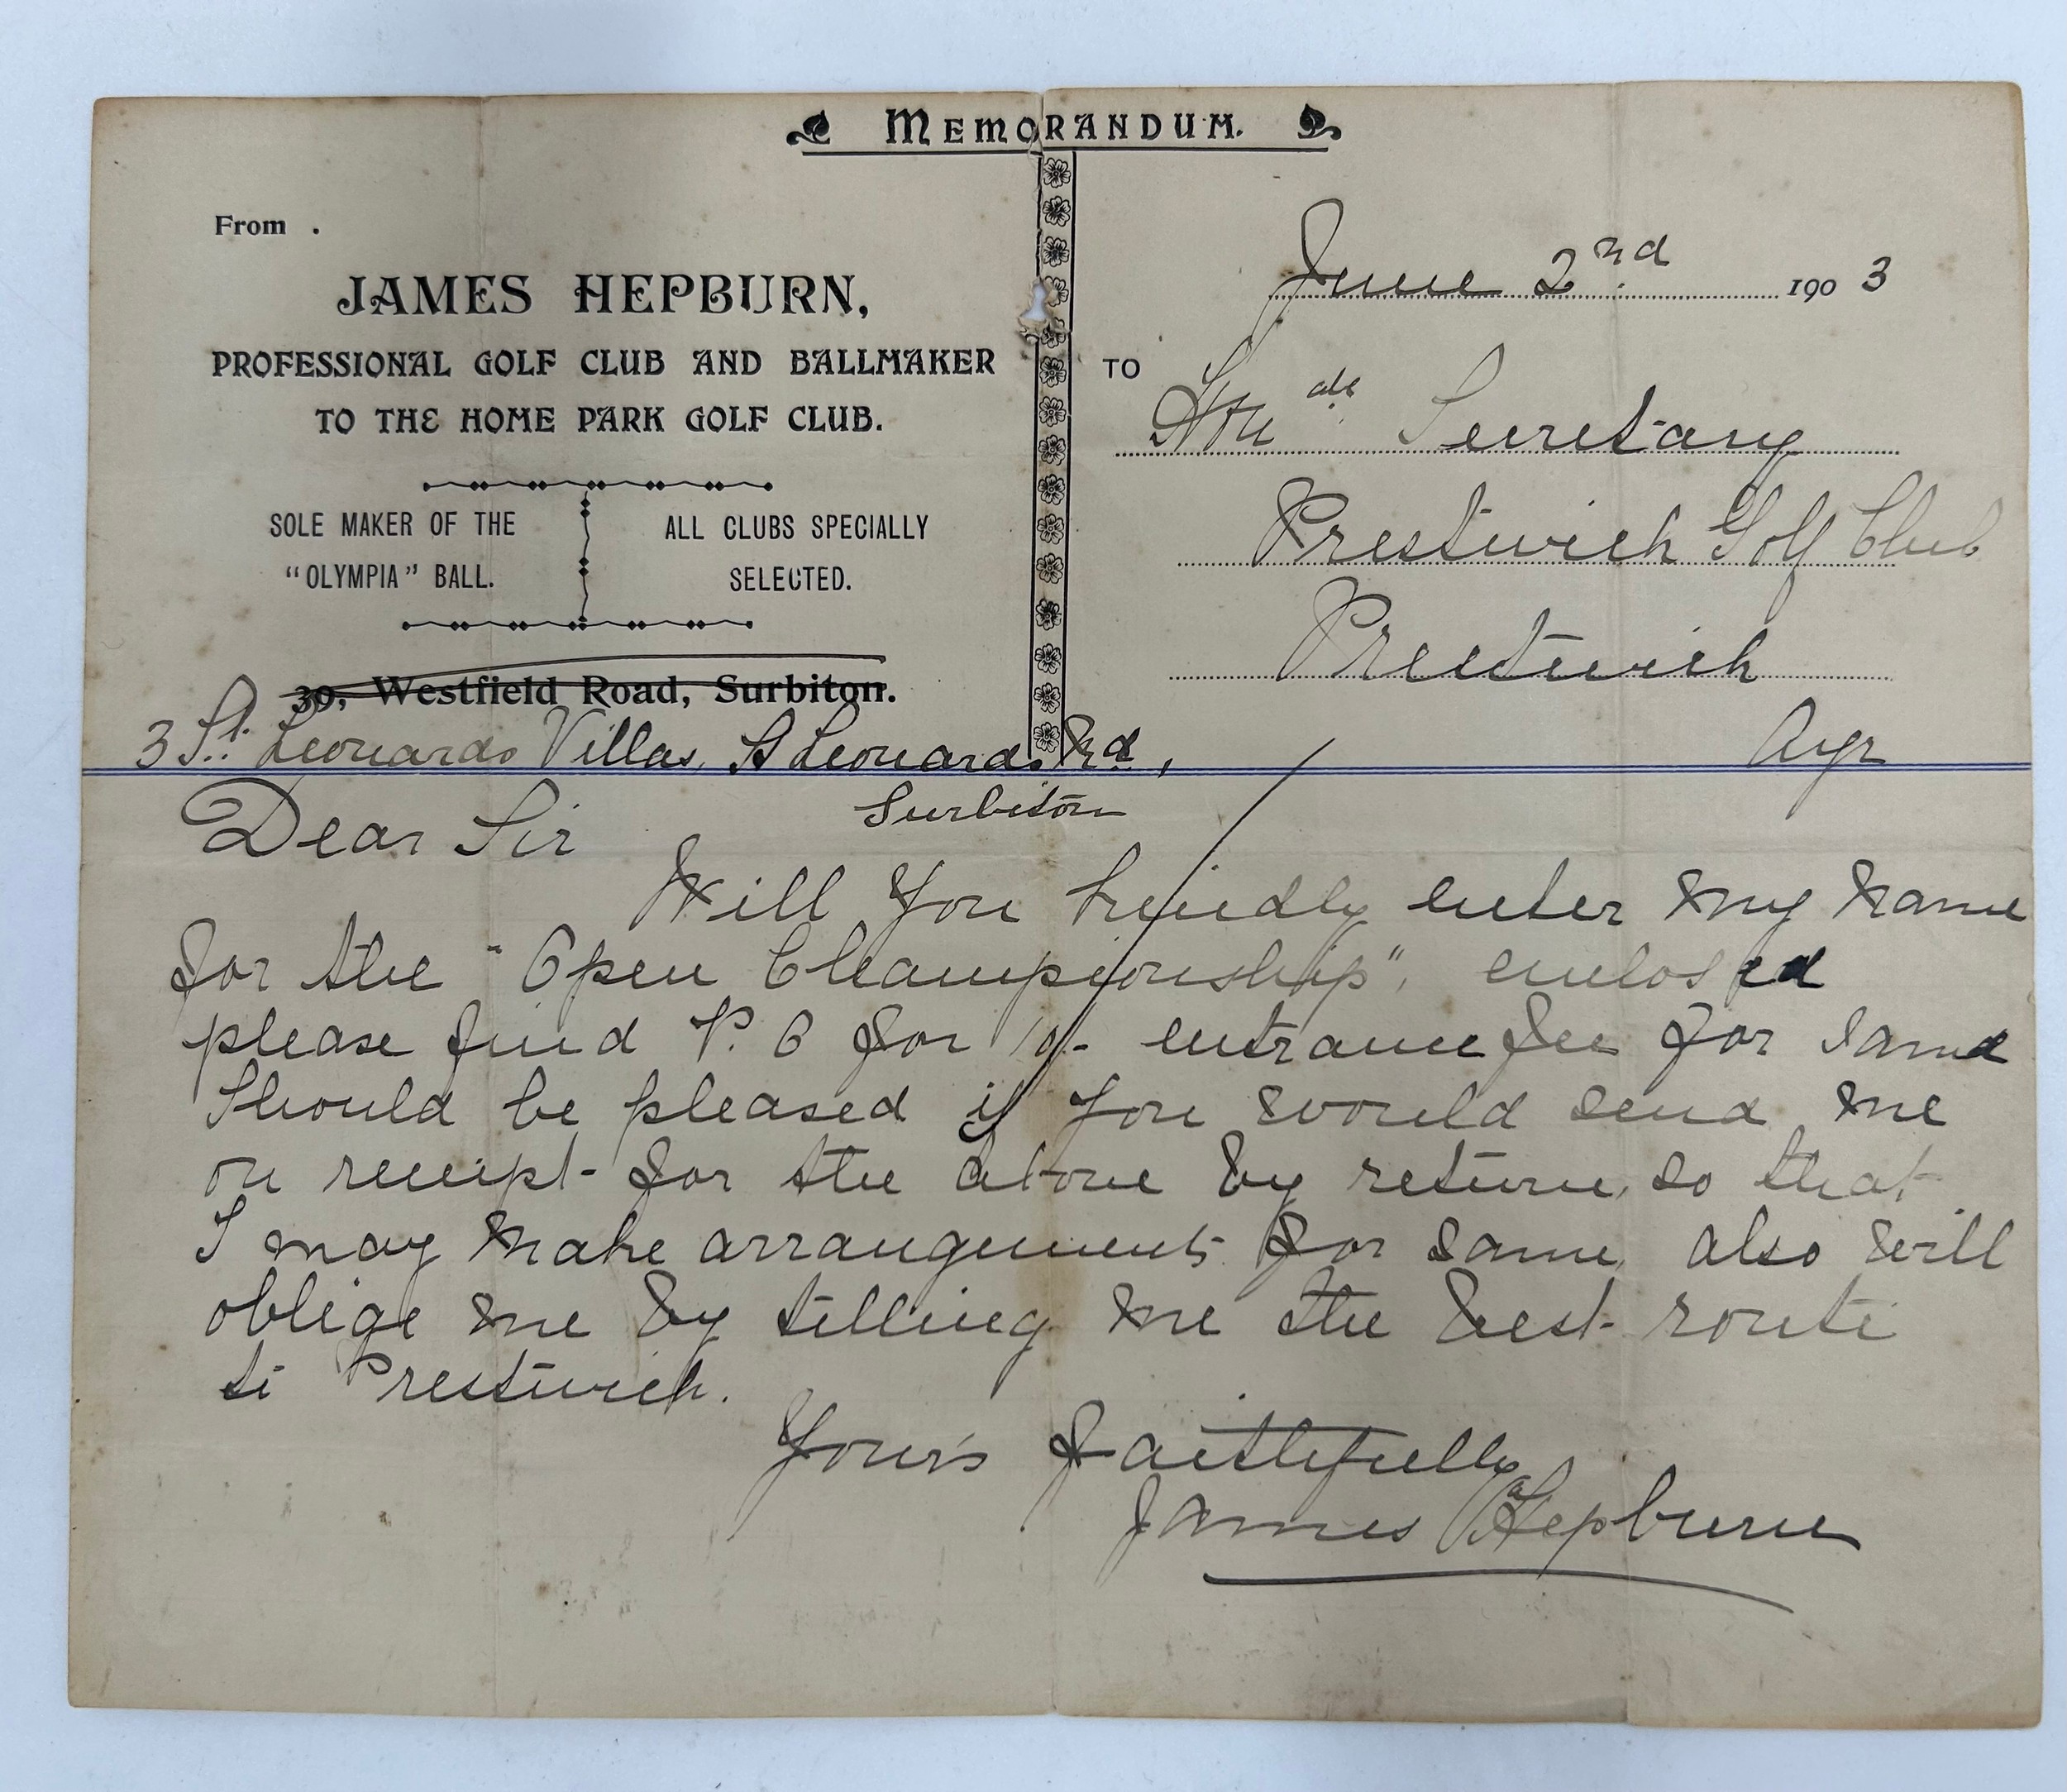 MEMORANDUM.
From .
JAMES HEPBURN,
PROFESSIONAL GOLF CLUB AND BALLMAKER
TO THE HOME PARK GOLF CLUB.
SOLE MAKER OF THE
"OLYMPIA" BALL.
ALL CLUBS SPECIALLY
SELECTED.
39, Westfield Road, Surbiton.
3 St. Leonards Villas, St Leonards Rd,
Surbiton
June 2nd 1903
TO
Honable Secretary
Prestwick Golf Club
Prestwick
Ayr
Dear Sir
Will You kindly enter my name
for the "Open Championship", enclosed
please find P. O for 10/- entrance fee for same
Should be pleased if you would send me
on receipt for the above by return, so that
I may make arrangements for same, also will
oblige me by telling me the best route
to Prestwick.
Your's faithfully
James Hepburn